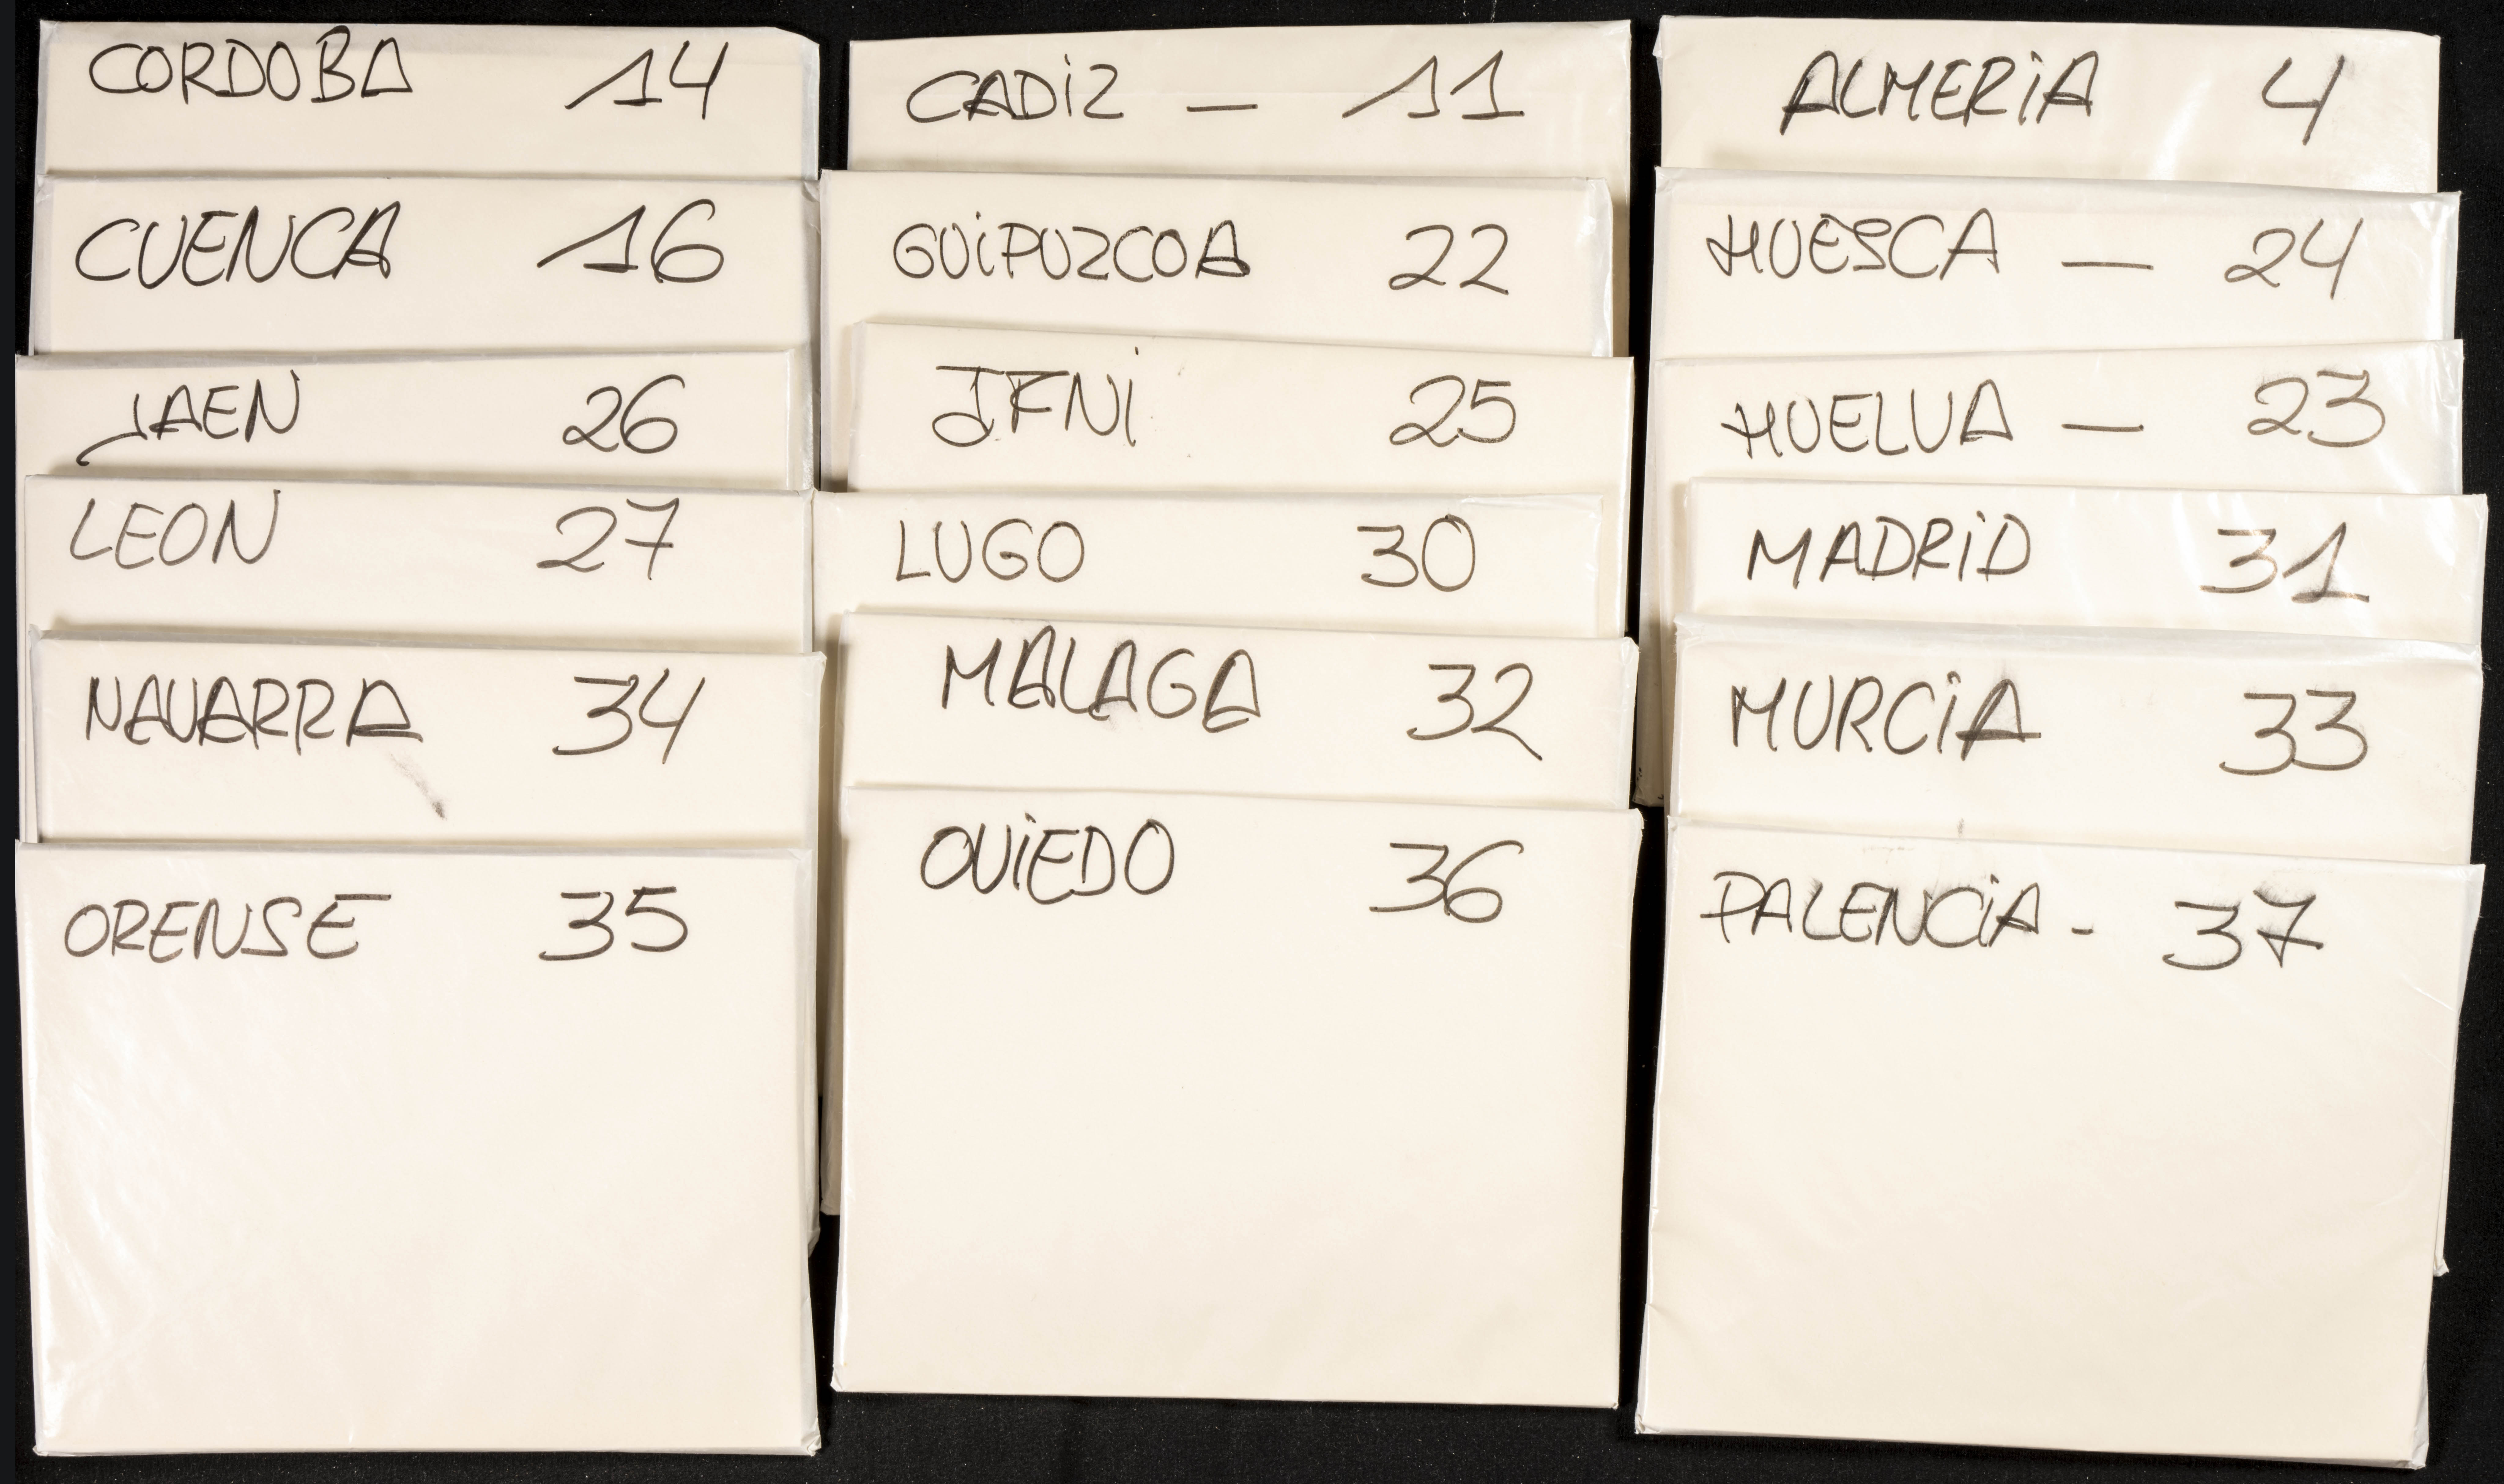 CORDOBA 14
CUENCA 16
JAEN 26
LEON 27
NAVARRA 34
ORENSE 35
CADIZ — 11
GUIPUZCOA 22
IFNI 25
LUGO 30
MALAGA 32
OVIEDO 36
ALMERIA 4
HUESCA — 24
HUELVA — 23
MADRID 31
MURCIA 33
PALENCIA - 37